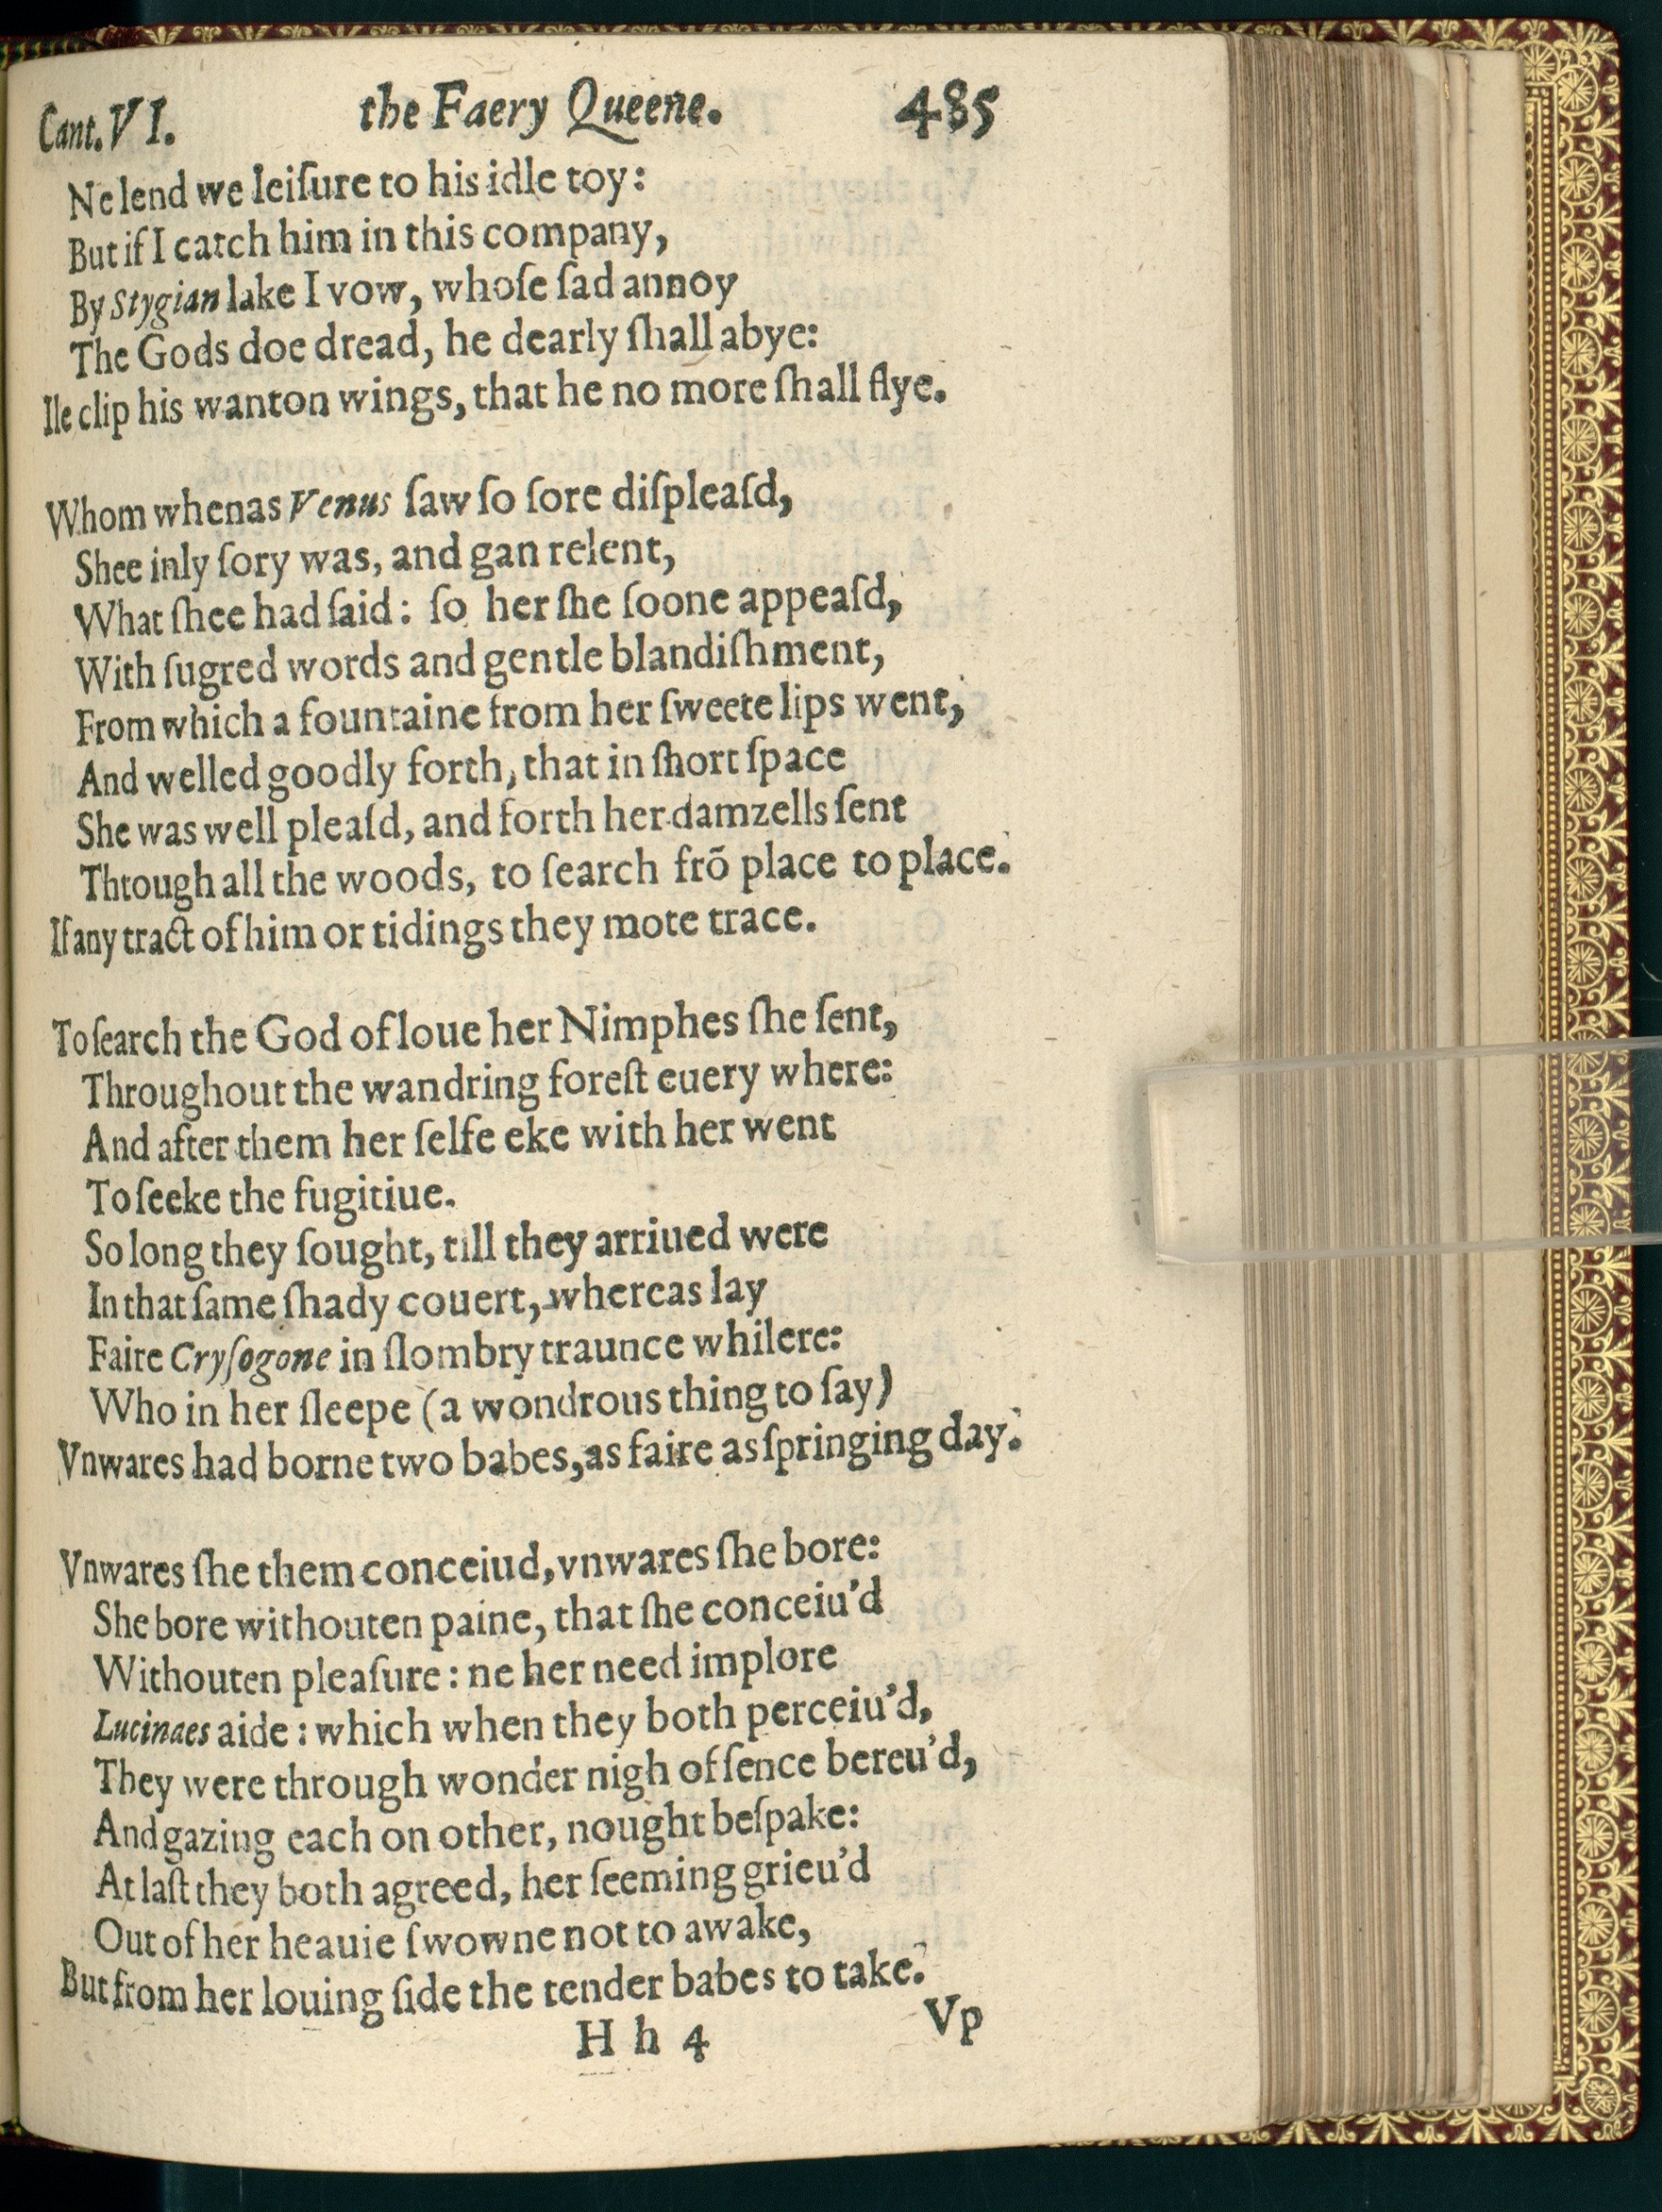 Cant. VI. the Faery Queene. 485
Ne lend we leiſure to his idle toy:
But if I catch him in this company,
By Stygian lake I vow, whoſe ſad annoy
The Gods doe dread, he dearly ſhall abye:
Ile clip his wanton wings, that he no more ſhall flye.
Whom whenas Venus ſaw ſo ſore diſpleaſd,
Shee inly ſory was, and gan relent,
What ſhee had ſaid: ſo her ſhe ſoone appeaſd,
With ſugred words and gentle blandiſhment,
From which a fountaine from her ſweete lips went,
And welled goodly forth, that in ſhort ſpace
She was well pleaſd, and forth her damzells ſent
Thtough all the woods, to ſearch frō place to place.
If any tract of him or tidings they mote trace.
To ſearch the God of loue her Nimphes ſhe ſent,
Throughout the wandring foreſt euery where:
And after them her ſelfe eke with her went
To ſeeke the fugitiue.
So long they ſought, till they arriued were
In that ſame ſhady couert, whereas lay
Faire Cryſogone in ſlombry traunce whilere:
Who in her ſleepe (a wondrous thing to ſay)
Vnwares had borne two babes, as faire as ſpringing day.
Vnwares ſhe them conceiud, vnwares ſhe bore:
She bore withouten paine, that ſhe conceiu'd
Withouten pleaſure: ne her need implore
Lucinaes aide: which when they both perceiu'd,
They were through wonder nigh of ſence bereu'd,
And gazing each on other, nought beſpake:
At laſt they both agreed, her ſeeming grieu'd
Out of her heauie ſwowne not to awake,
But from her louing ſide the tender babes to take.
H h 4 Vp